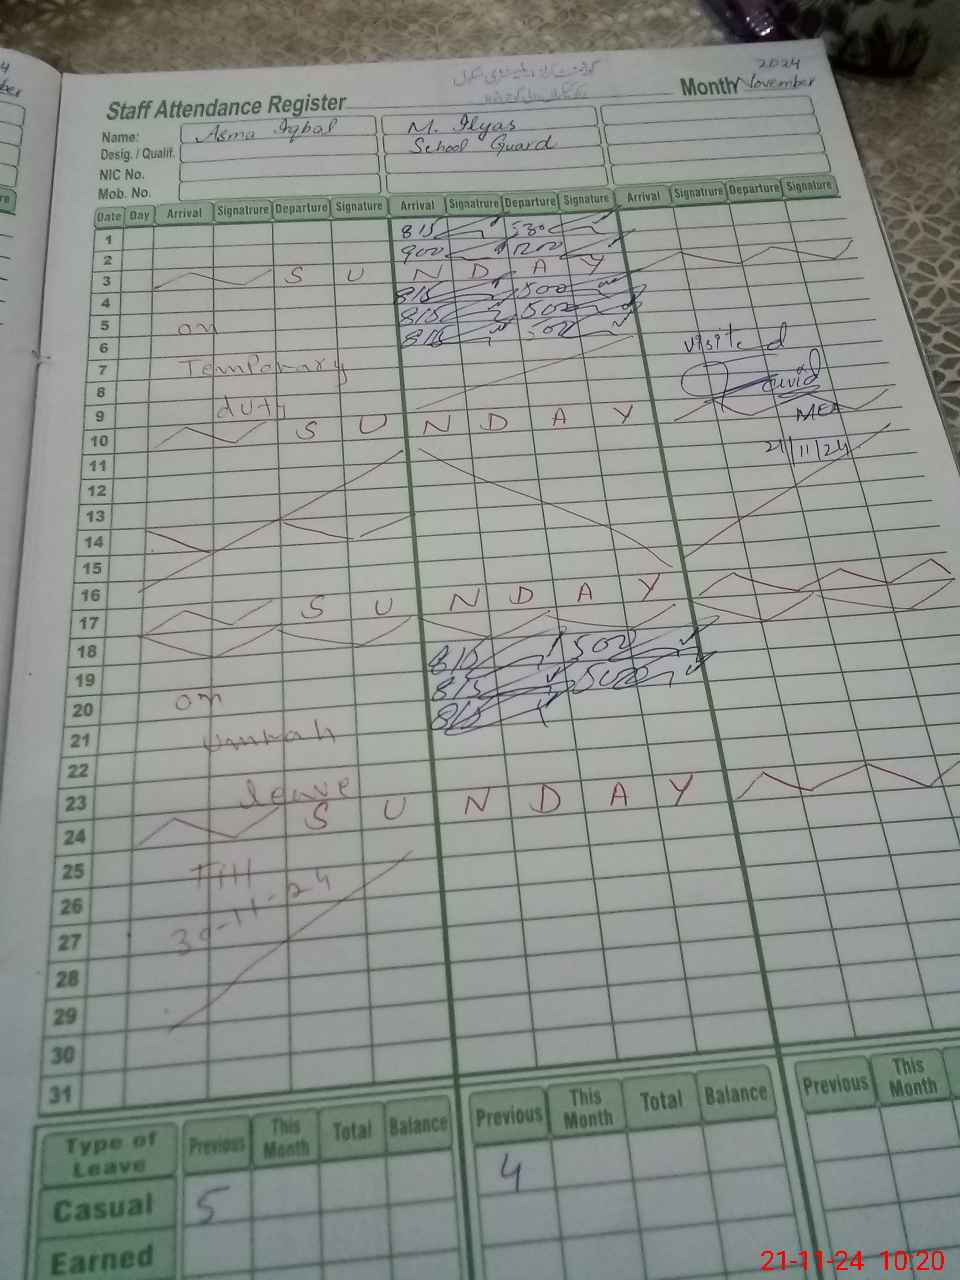 2024
Staff Attendance Register Month November
Name: Asma Iqbal M. Ilyas
Desig. / Qualif. School Guard
NIC No.
Mob. No.
Date Day Arrival Signatrure Departure Signature Arrival Signatrure Departure Signature Arrival Signatrure Departure Signature
1 815 530
2 900 1200
3 S U N D A Y
4 815 500
5 on 815 500
6 815 500
7 Temporary visited
8 duty Javid
9 MEA
10 S U N D A Y
11 21/11/24
12
13
14
15
16
17 S U N D A Y
18
19 815 500
20 on 815 500
21 Umrah 815
22
23 leave
24 S U N D A Y
25 Till
26 30-11-24
27
28
29
30
31
Type of Leave Previous This Month Total Balance Previous This Month Total Balance Previous This Month
Casual 5 4
Earned
21-11-24 10:20